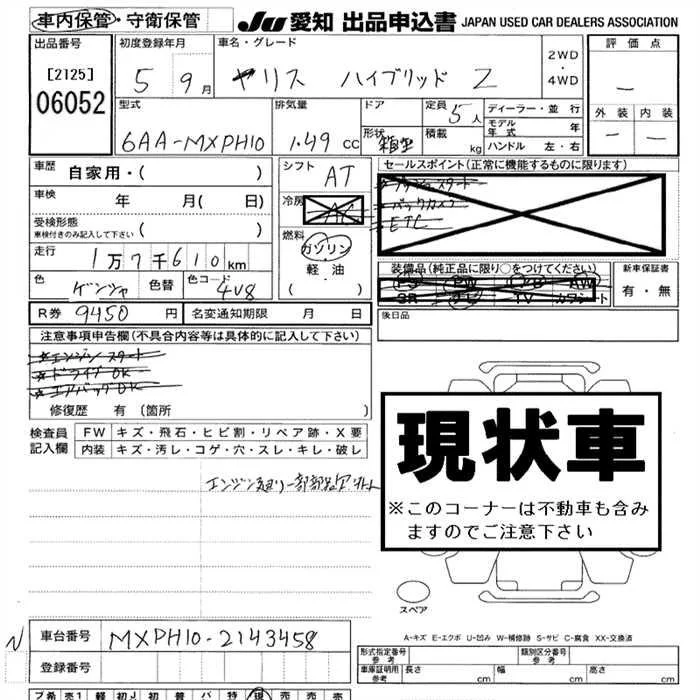 車内保管・守衛保管
JU 愛知 出品申込書 JAPAN USED CAR DEALERS ASSOCIATION
出品番号
[2125]
06052
初度登録年月
5 9月
車名・グレード
ヤリス ハイブリッド Z
2WD
・
4WD
評価点
―
外装 内装
― ―
型式
6AA-MXPH10
排気量
1.49 cc
ドア
形状
箱型
定員 5人
積載 kg
ディーラー・並行
モデル年式 年
ハンドル 左・右
車歴 自家用・( )
車検 年 月( 日)
受検形態
車検付きのみ記入して下さい ( )
走行 1万7千610km
色 ゲンシャ 色替 色コード 4V8
シフト AT
冷房 AC
燃料
ガソリン
軽油
( )
セールスポイント(正常に機能するものに限ります)
プッシュスタート
バックカメラ
ETC
装備品(純正品に限り○をつけてください)
SR ナビ TV カワシート
新車保証書
有・無
R券 9450 円 名変通知期限 月 日
後日品
注意事項申告欄(不具合内容等は具体的に記入して下さい)
※エンジンスタート
※ドライブOK
※エアバックOK
修復歴 有(箇所 )
検査員
記入欄
FW キズ・飛石・ヒビ割・リペア跡・X要
内装 キズ・汚レ・コゲ・穴・スレ・キレ・破レ
現状車
※このコーナーは不動車も含み
ますのでご注意下さい
スペア
A-キズ E-エクボ U-凹み W-補修跡 S-サビ C-腐食 XX-交換済
N 車台番号 MXPH10-2143458
登録番号
形式指定番号
参考
類別区分番号
参考
車庫証明用
参考
長さ cm 幅 cm 高さ cm